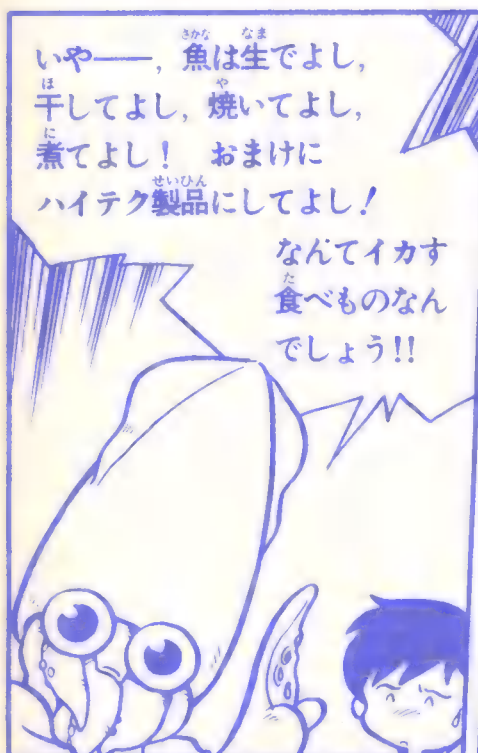 いや――，魚は生でよし，
干してよし，焼いてよし，
煮てよし！　おまけに
ハイテク製品にしてよし！
なんてイカす
食べものなん
でしょう!!